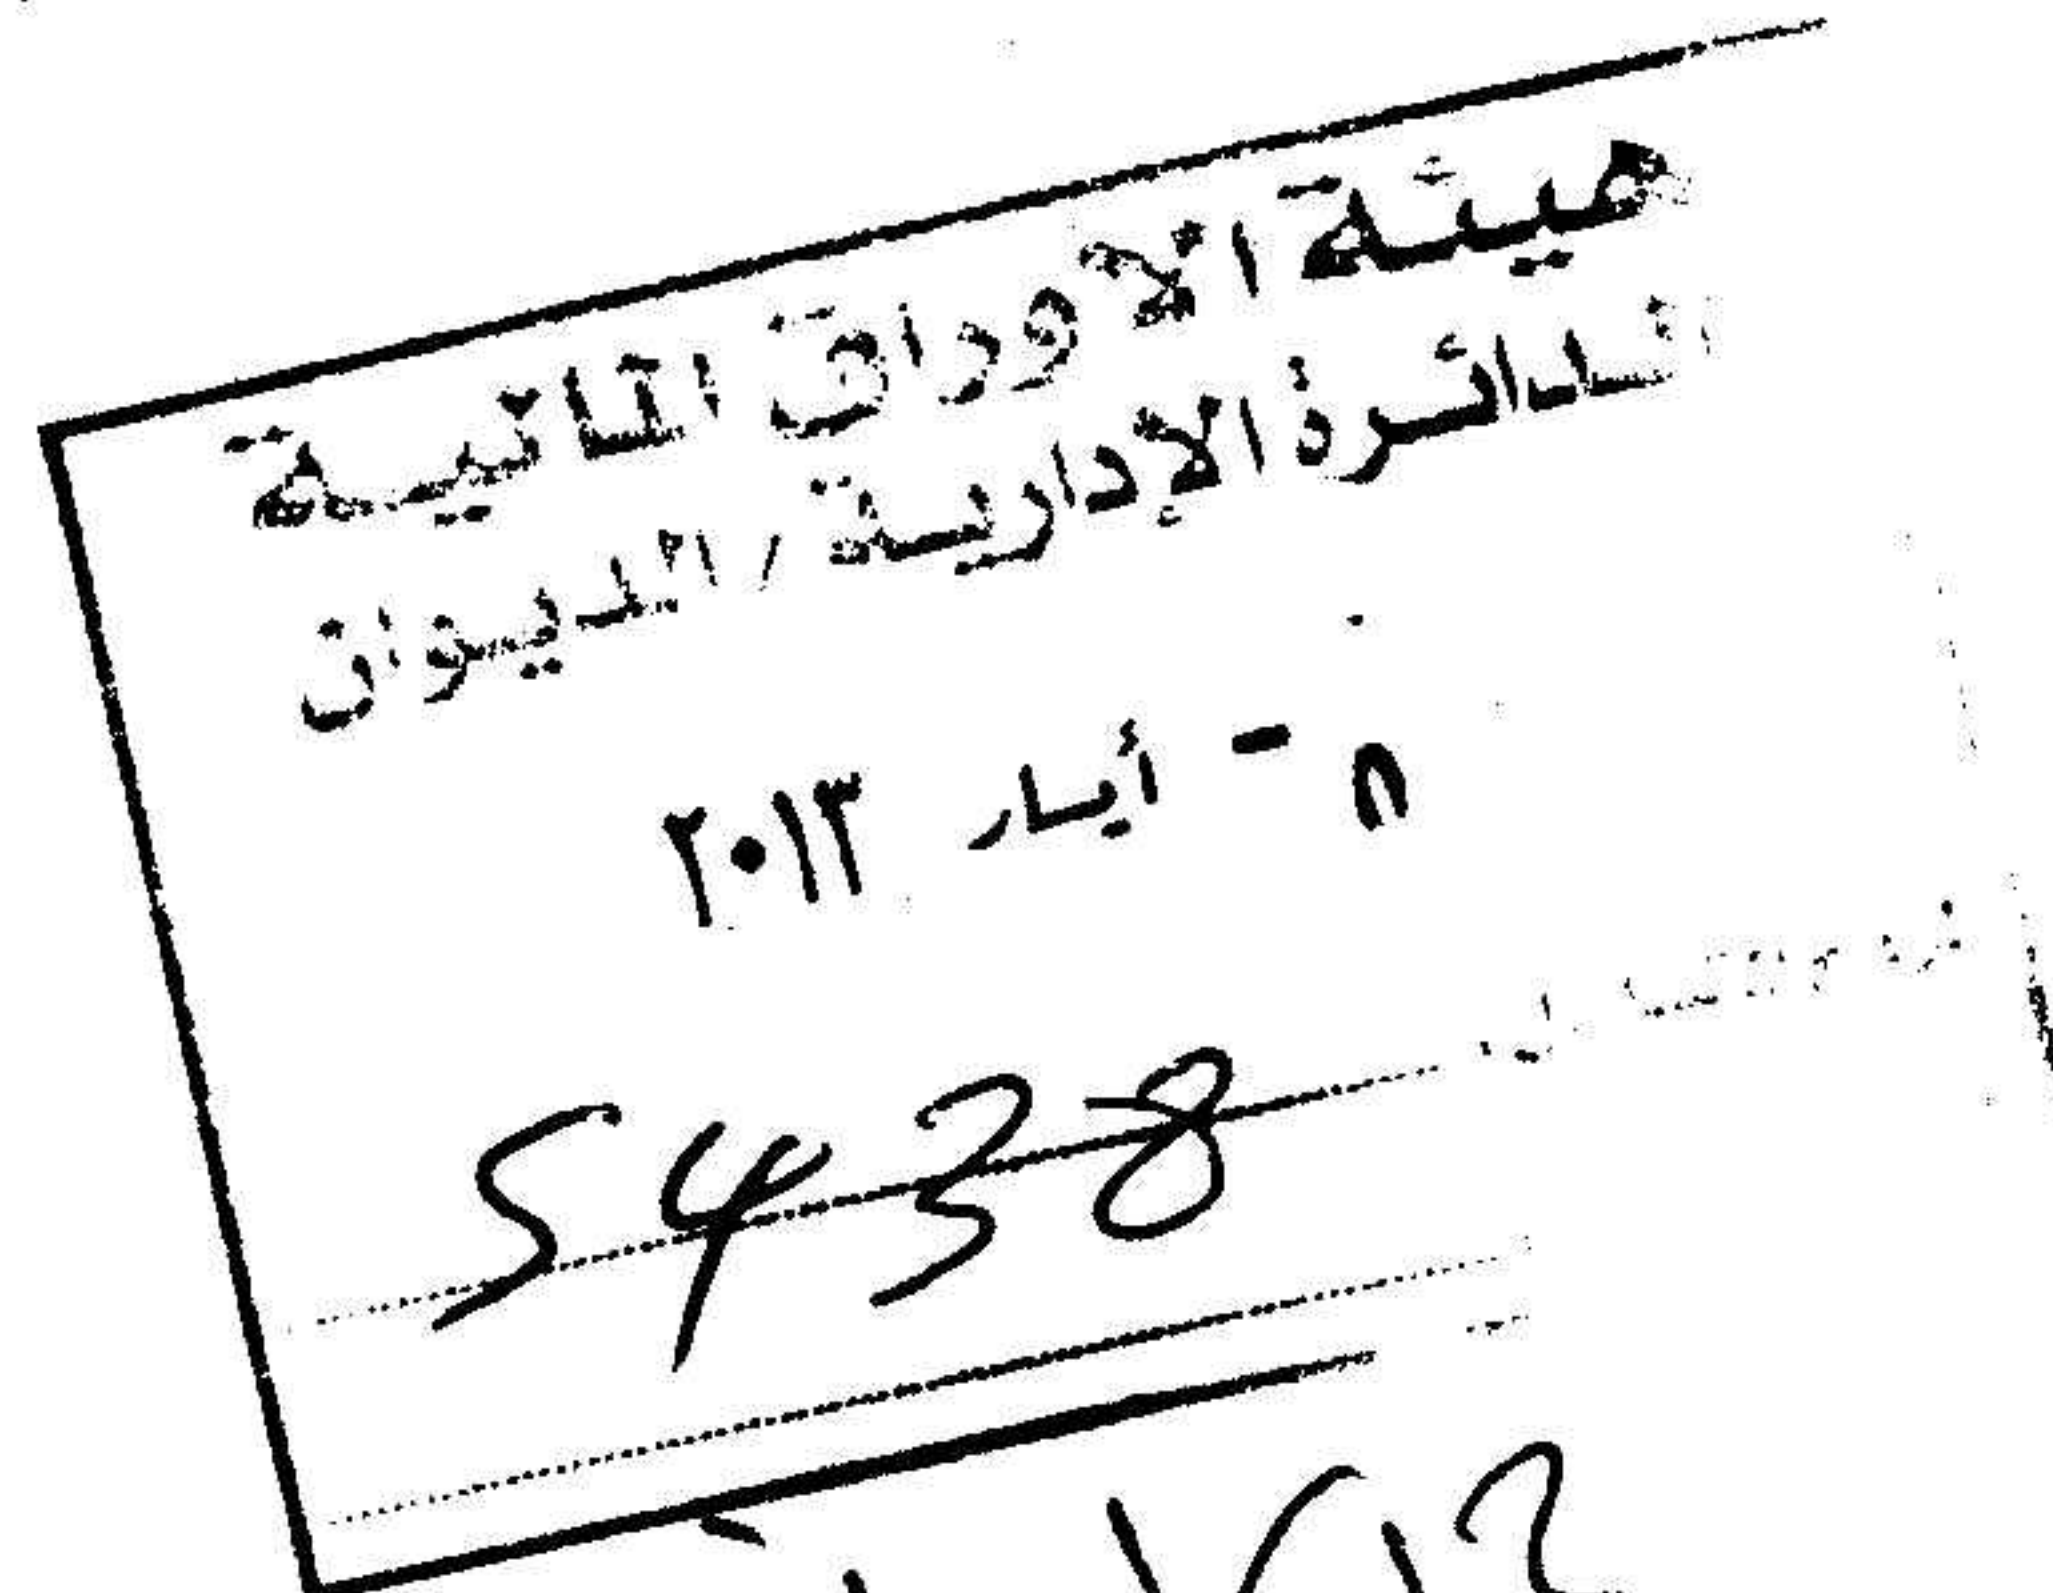 هيئة الاوراق المالية
الدائرة الإدارية / الديوان
٨ - أيار ٢٠١٣
5438